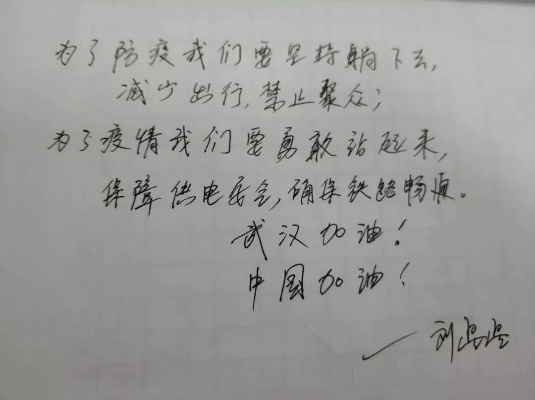 为了防疫我们要坚持躺下去，
减少出行，禁止聚众；
为了疫情我们要勇敢站起来，
保障供电安全，确保铁路畅通。
武汉加油！
中国加油！
— 刘